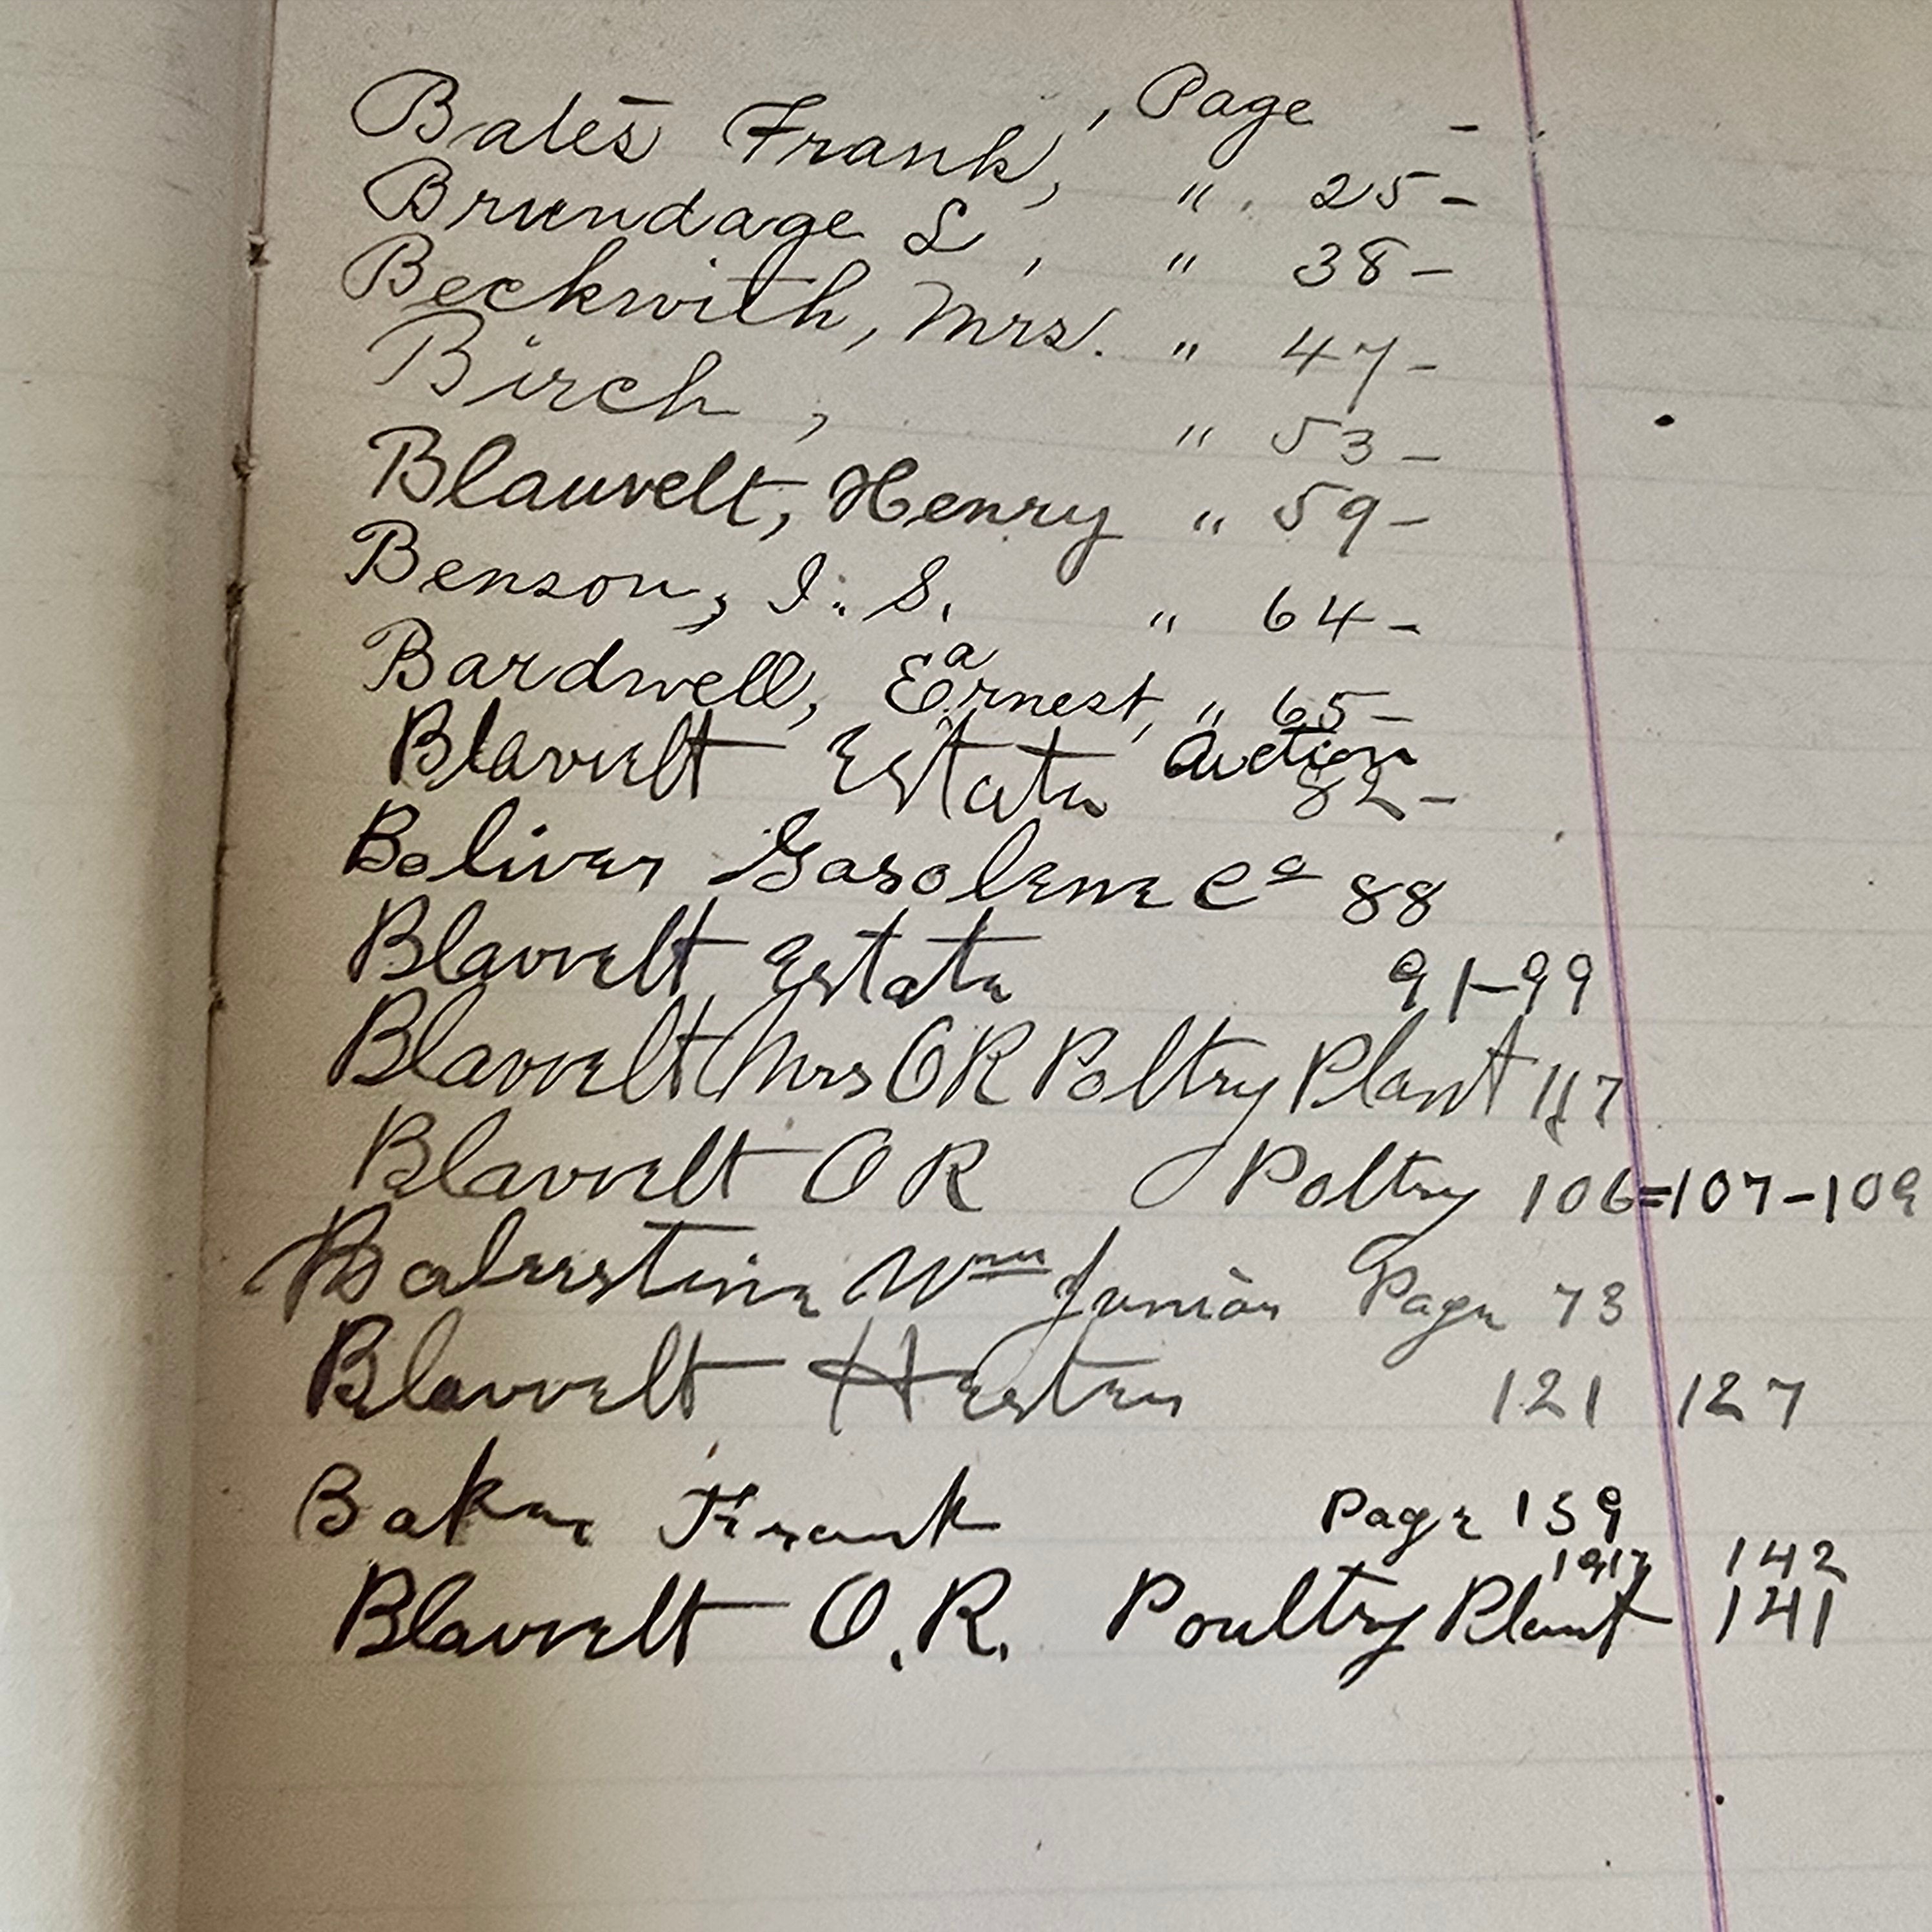 Page -
Bates Frank, " 25-
Brundage S, " 38-
Beckwith, Mrs. " 47-
Birch, " 53-
Blauvelt, Henry " 59-
Benson, I. S. " 64-
Bardwell, Earnest, " 65-
Blauvelt Estate Auction 82-
Boliver Gasolene Co 88
Blauvelt Estate 91-99
Blauvelt Mrs OR Poltry Plant 117
Blauvelt OR Poltry 106=107-109
Balerstine Wm Junior Page 73
Blauvelt Hester 121 127
Baker Frank Page 139
1917 142
Blauvelt O.R. Poultry Plant 141